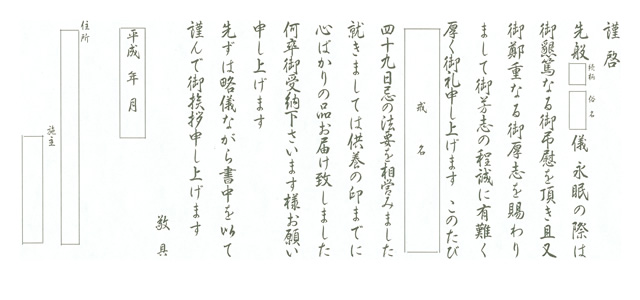 謹啓
先般 続柄 俗名 儀 永眠の際は
御懇篤なる御弔慰を頂き且又
御鄭重なる御厚志を賜わり
まして御芳志の程誠に有難く
厚く御礼申し上げます このたび
戒名
四十九日忌の法要を相営みました
就きましては供養の印までに
心ばかりの品お届け致しました
何卒御受納下さいます様お願い
申し上げます
先ずは略儀ながら書中を以て
謹んで御挨拶申し上げます
敬具
平成 年 月
住所
施主